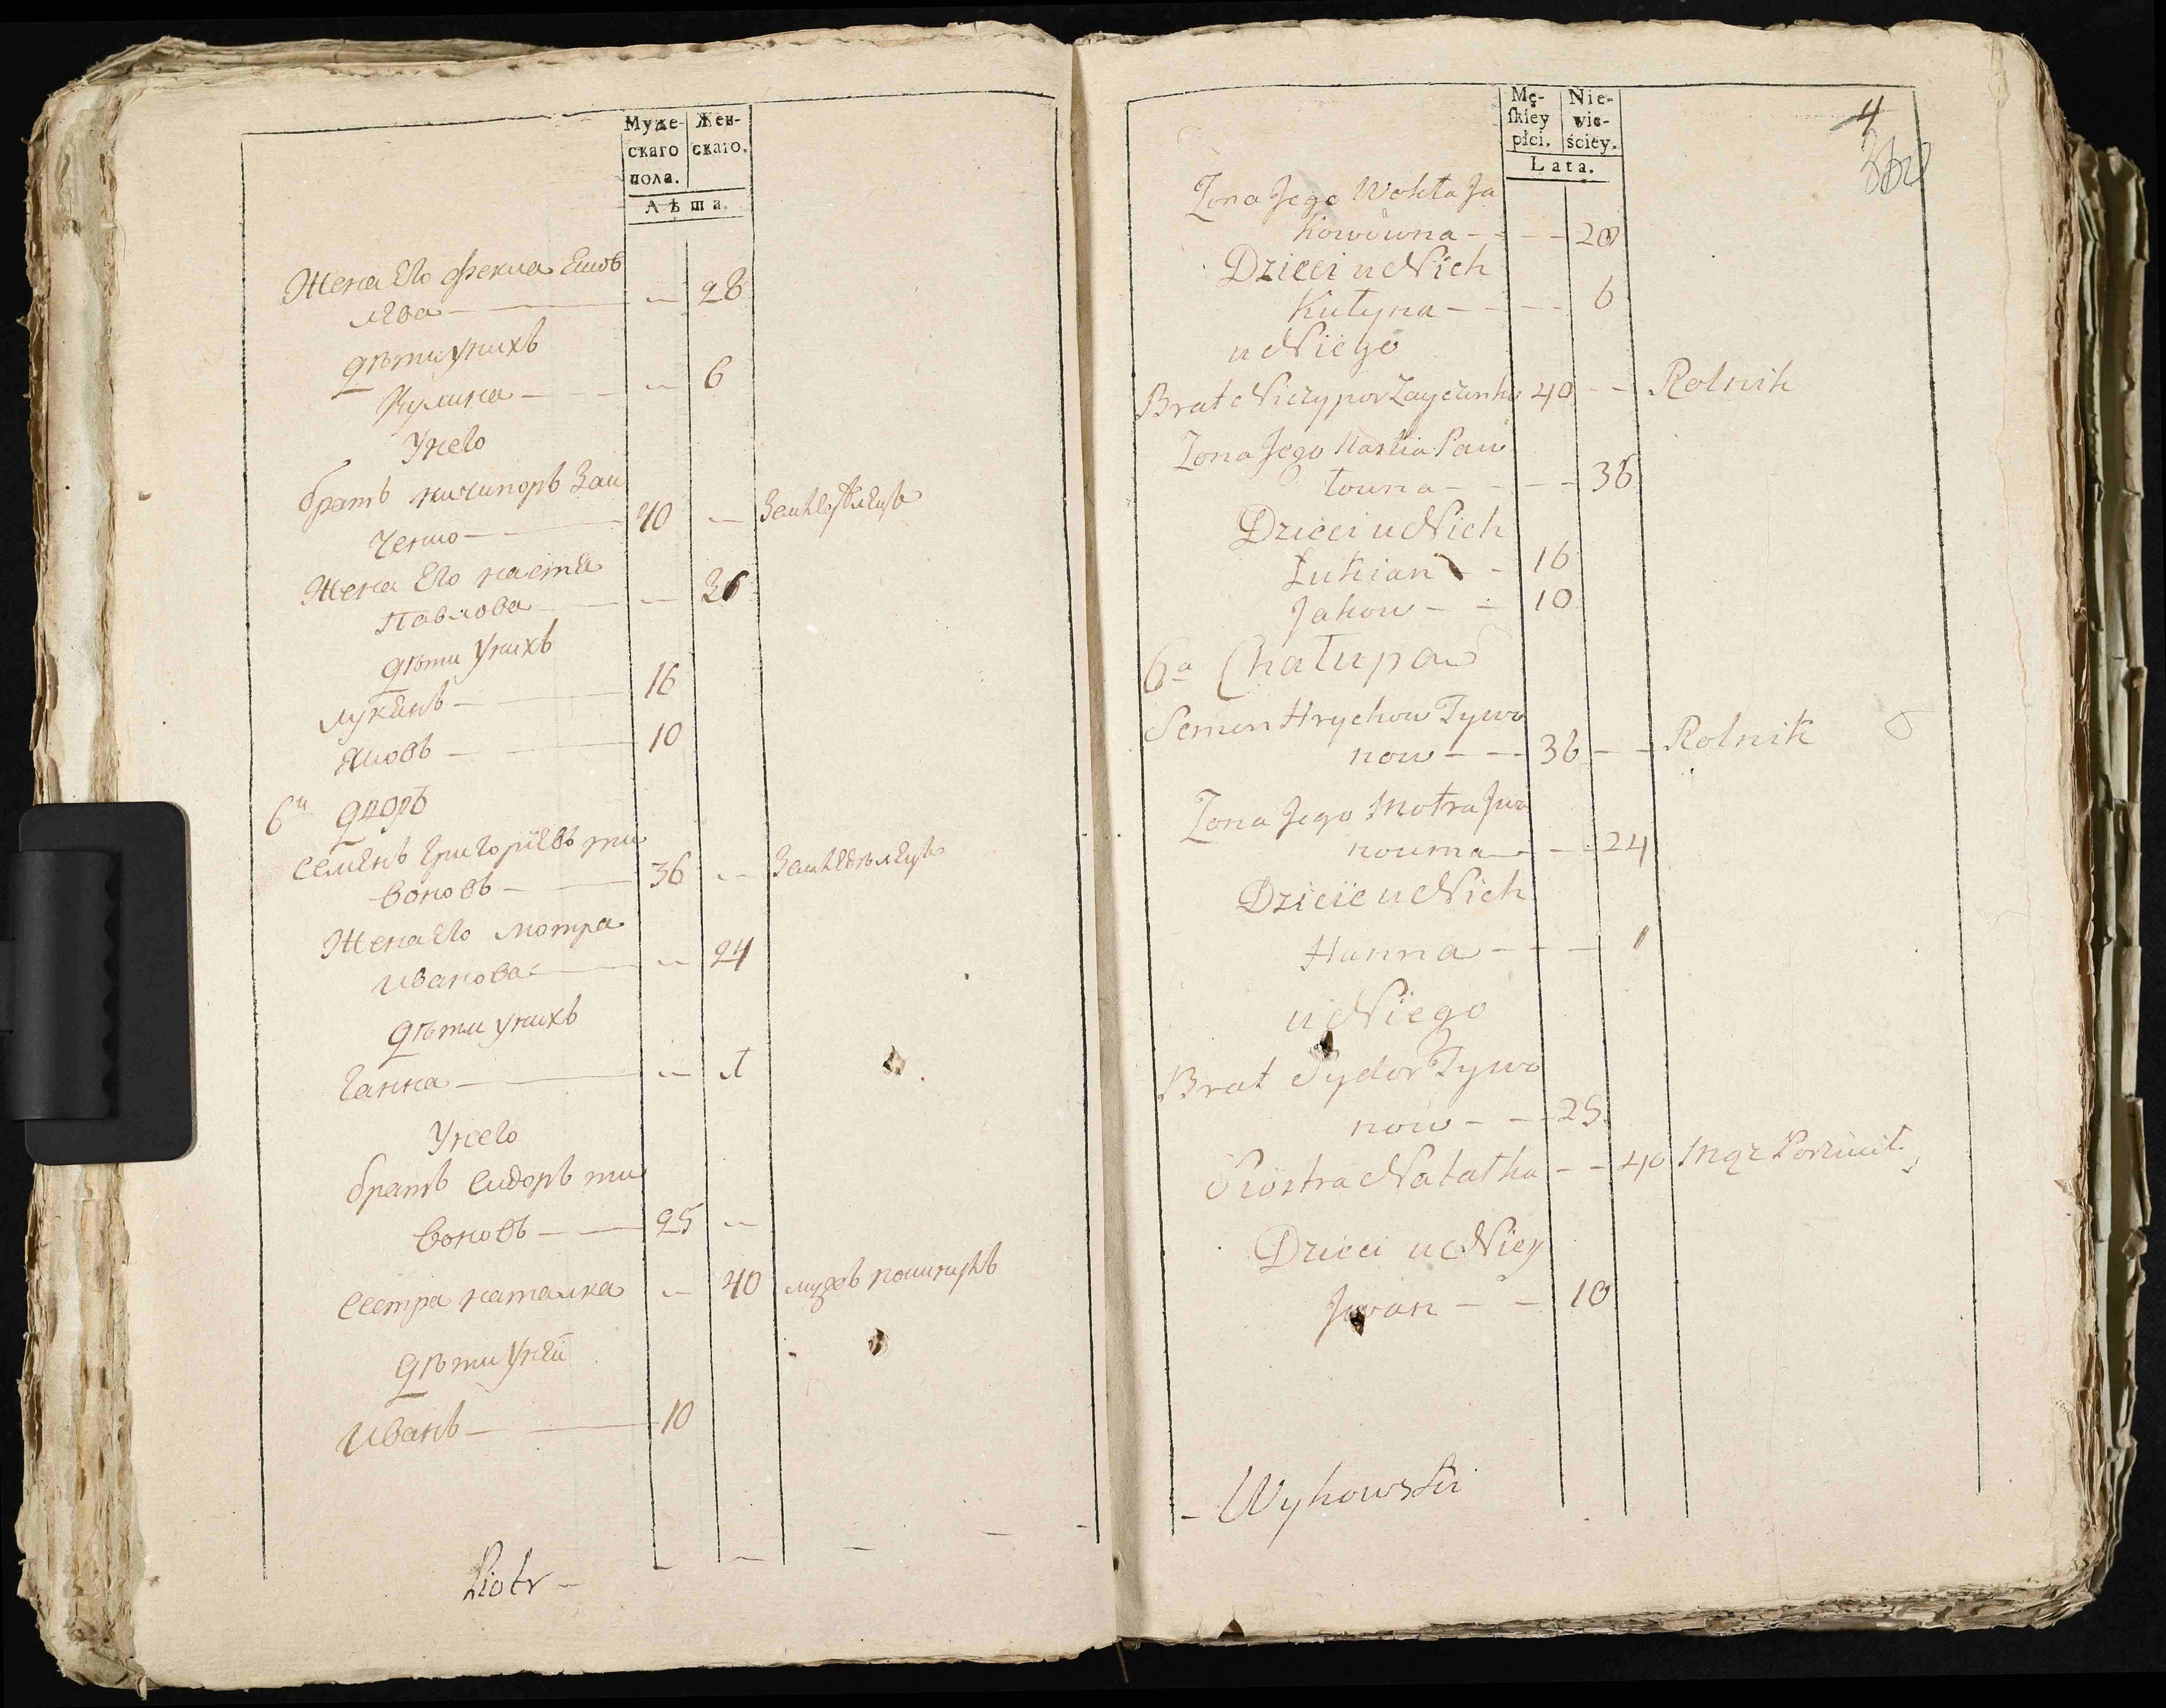 Муже-
скаго
пола.
Жен-
скаго.
Лѣта.
Жена Его Фекла Яков
лева — 28
дѣти унихъ
Кулина — 6
Унего
братъ ничипоръ Заи
ченко — 40 — Земледѣлецъ
Жена Его настя
Павлова — 36
дѣти Унихъ
Лукянъ — 16
Яковъ — 10
6й дворъ
Семенъ Григоріевъ ти
воновъ — 36 — Земледѣлецъ
Жена Его мотра
иванова — 24
дѣти унихъ
Ганна — 1
Унего
братъ Сидоръ ти
воновъ — 25 —
Сестра наталка — 40 мужъ
дѣти Уней
иванъ — 10
Piotr —
Mę-
ſkiey
płci.
Nie-
wie-
ściey.
Lata.
4
Zona Jego Wekła Ja
kowowna — 28
Dzieci u Nich
Kulyna — 6
u Niego
Brat Niczypor Zayczenko 40 — Rolnik
Zona Jego Nastia Paw
łowna — 36
Dzieci u Nich
Łukian — 16
Jakow — 10
6a Chałupa
Semen Hrychow Tywo
now — 36 — Rolnik
Zona Jego Motra Jwa
nowna — 24
Dziecie u Nich
Hanna — 1
u Niego
Brat Sydor Tywo
now — 25
Siostra Natałka — 40 Mąz Porzucił
Dzieci u Niey
Jwan — 10
- Wyhowski